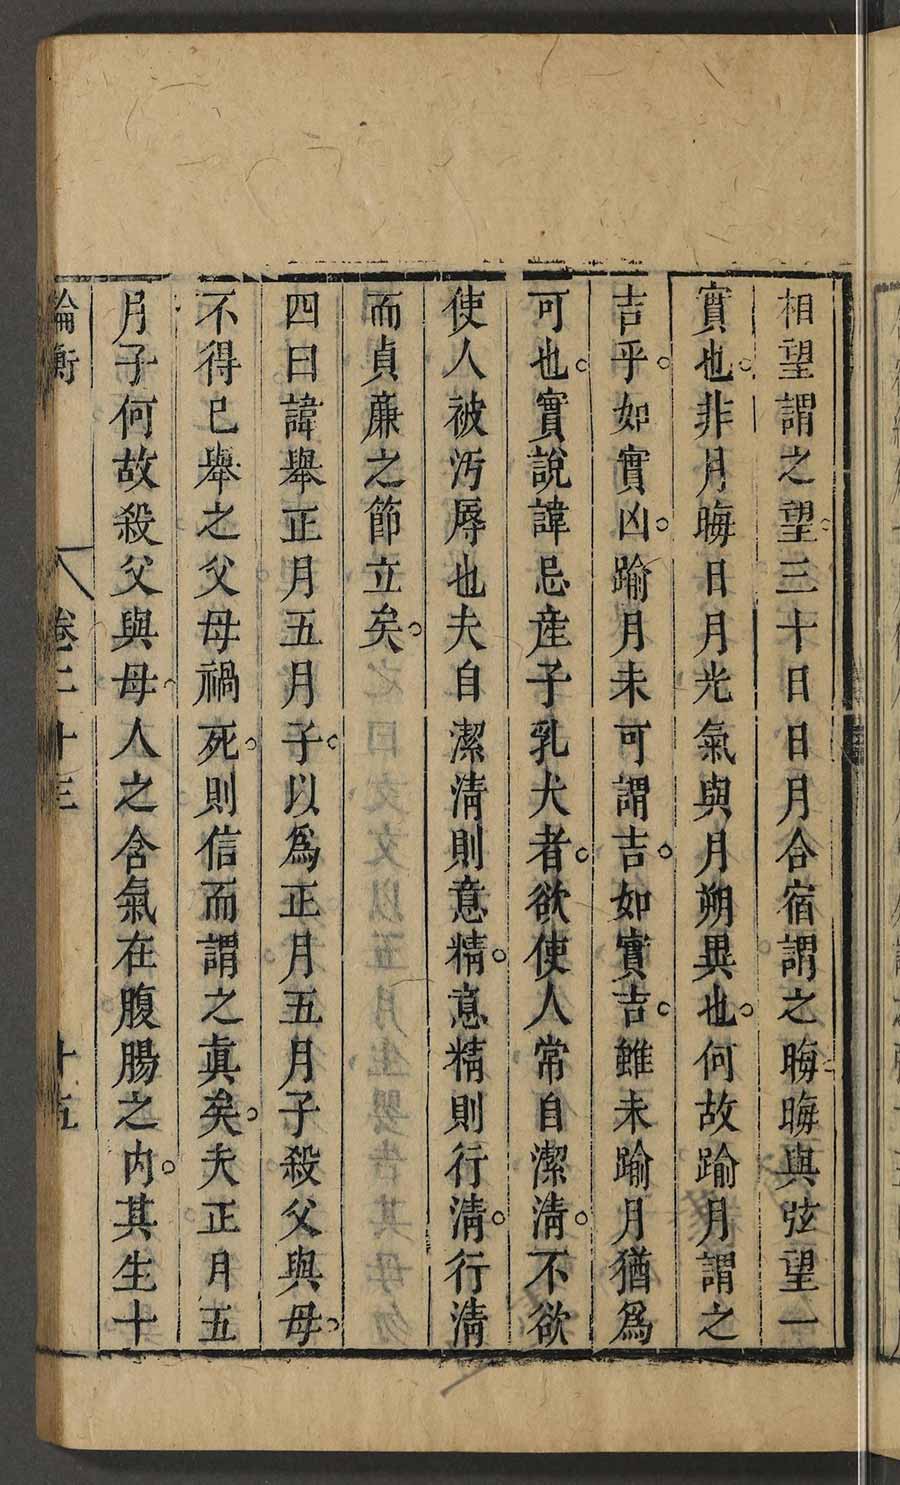 相望謂之望三十日日月合宿謂之晦晦與弦望一
實也非月晦日月光氣與月朔異也何故踰月謂之
吉乎如實凶踰月未可謂吉如實吉雖未踰月猶爲
可也實說諱忌産子乳犬者欲使人常自潔淸不欲
使人被汚辱也夫自潔淸則意精意精則行淸行淸
而貞廉之節立矣
四曰諱舉正月五月子以爲正月五月子殺父與母
不得已舉之父母禍死則信而謂之眞矣夫正月五
月子何故殺父與母人之含氣在腹腸之內其生十
論衡 卷二十三 十五